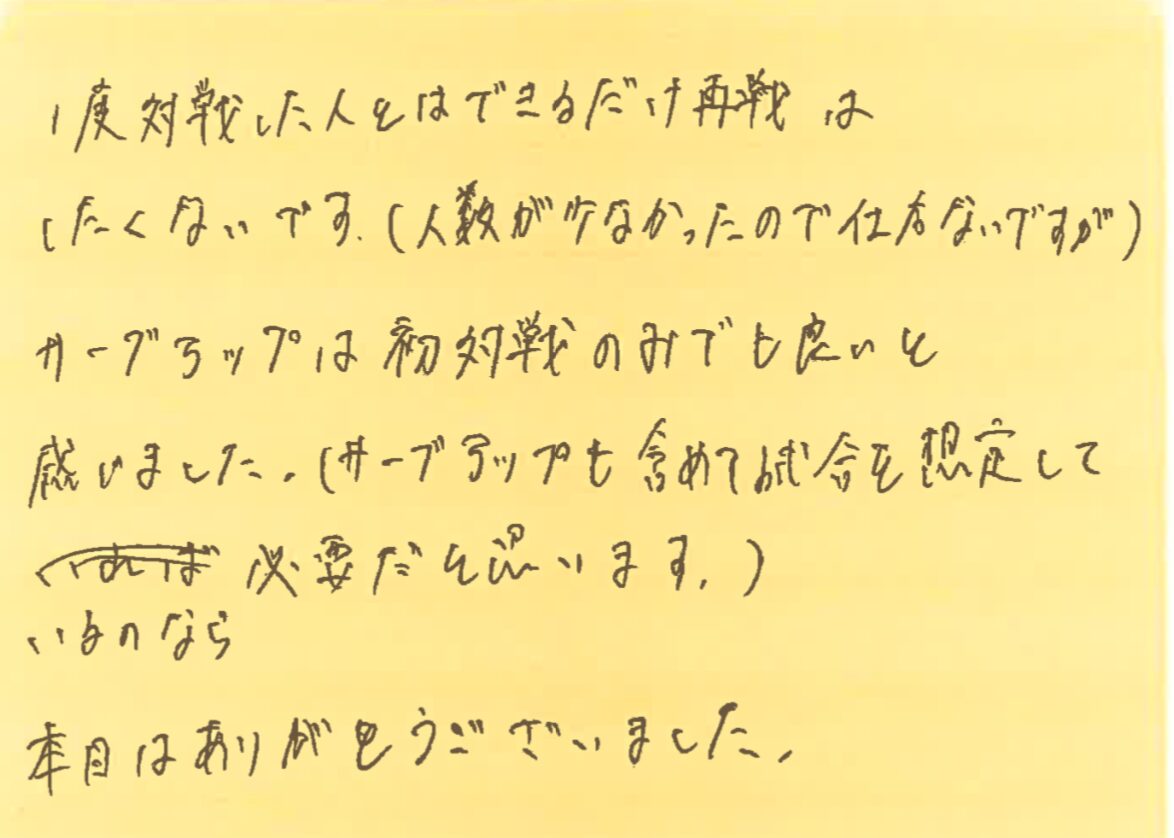 1度対戦した人とはできるだけ再戦は
したくないです.(人数が少なかったので仕方ないですが)
サーブアップは初対戦のみでも良いと
感いました.(サーブアップも含めて試合を想定して
いれば 必要だと思います.)
いるのなら
本日はありがとうございました.